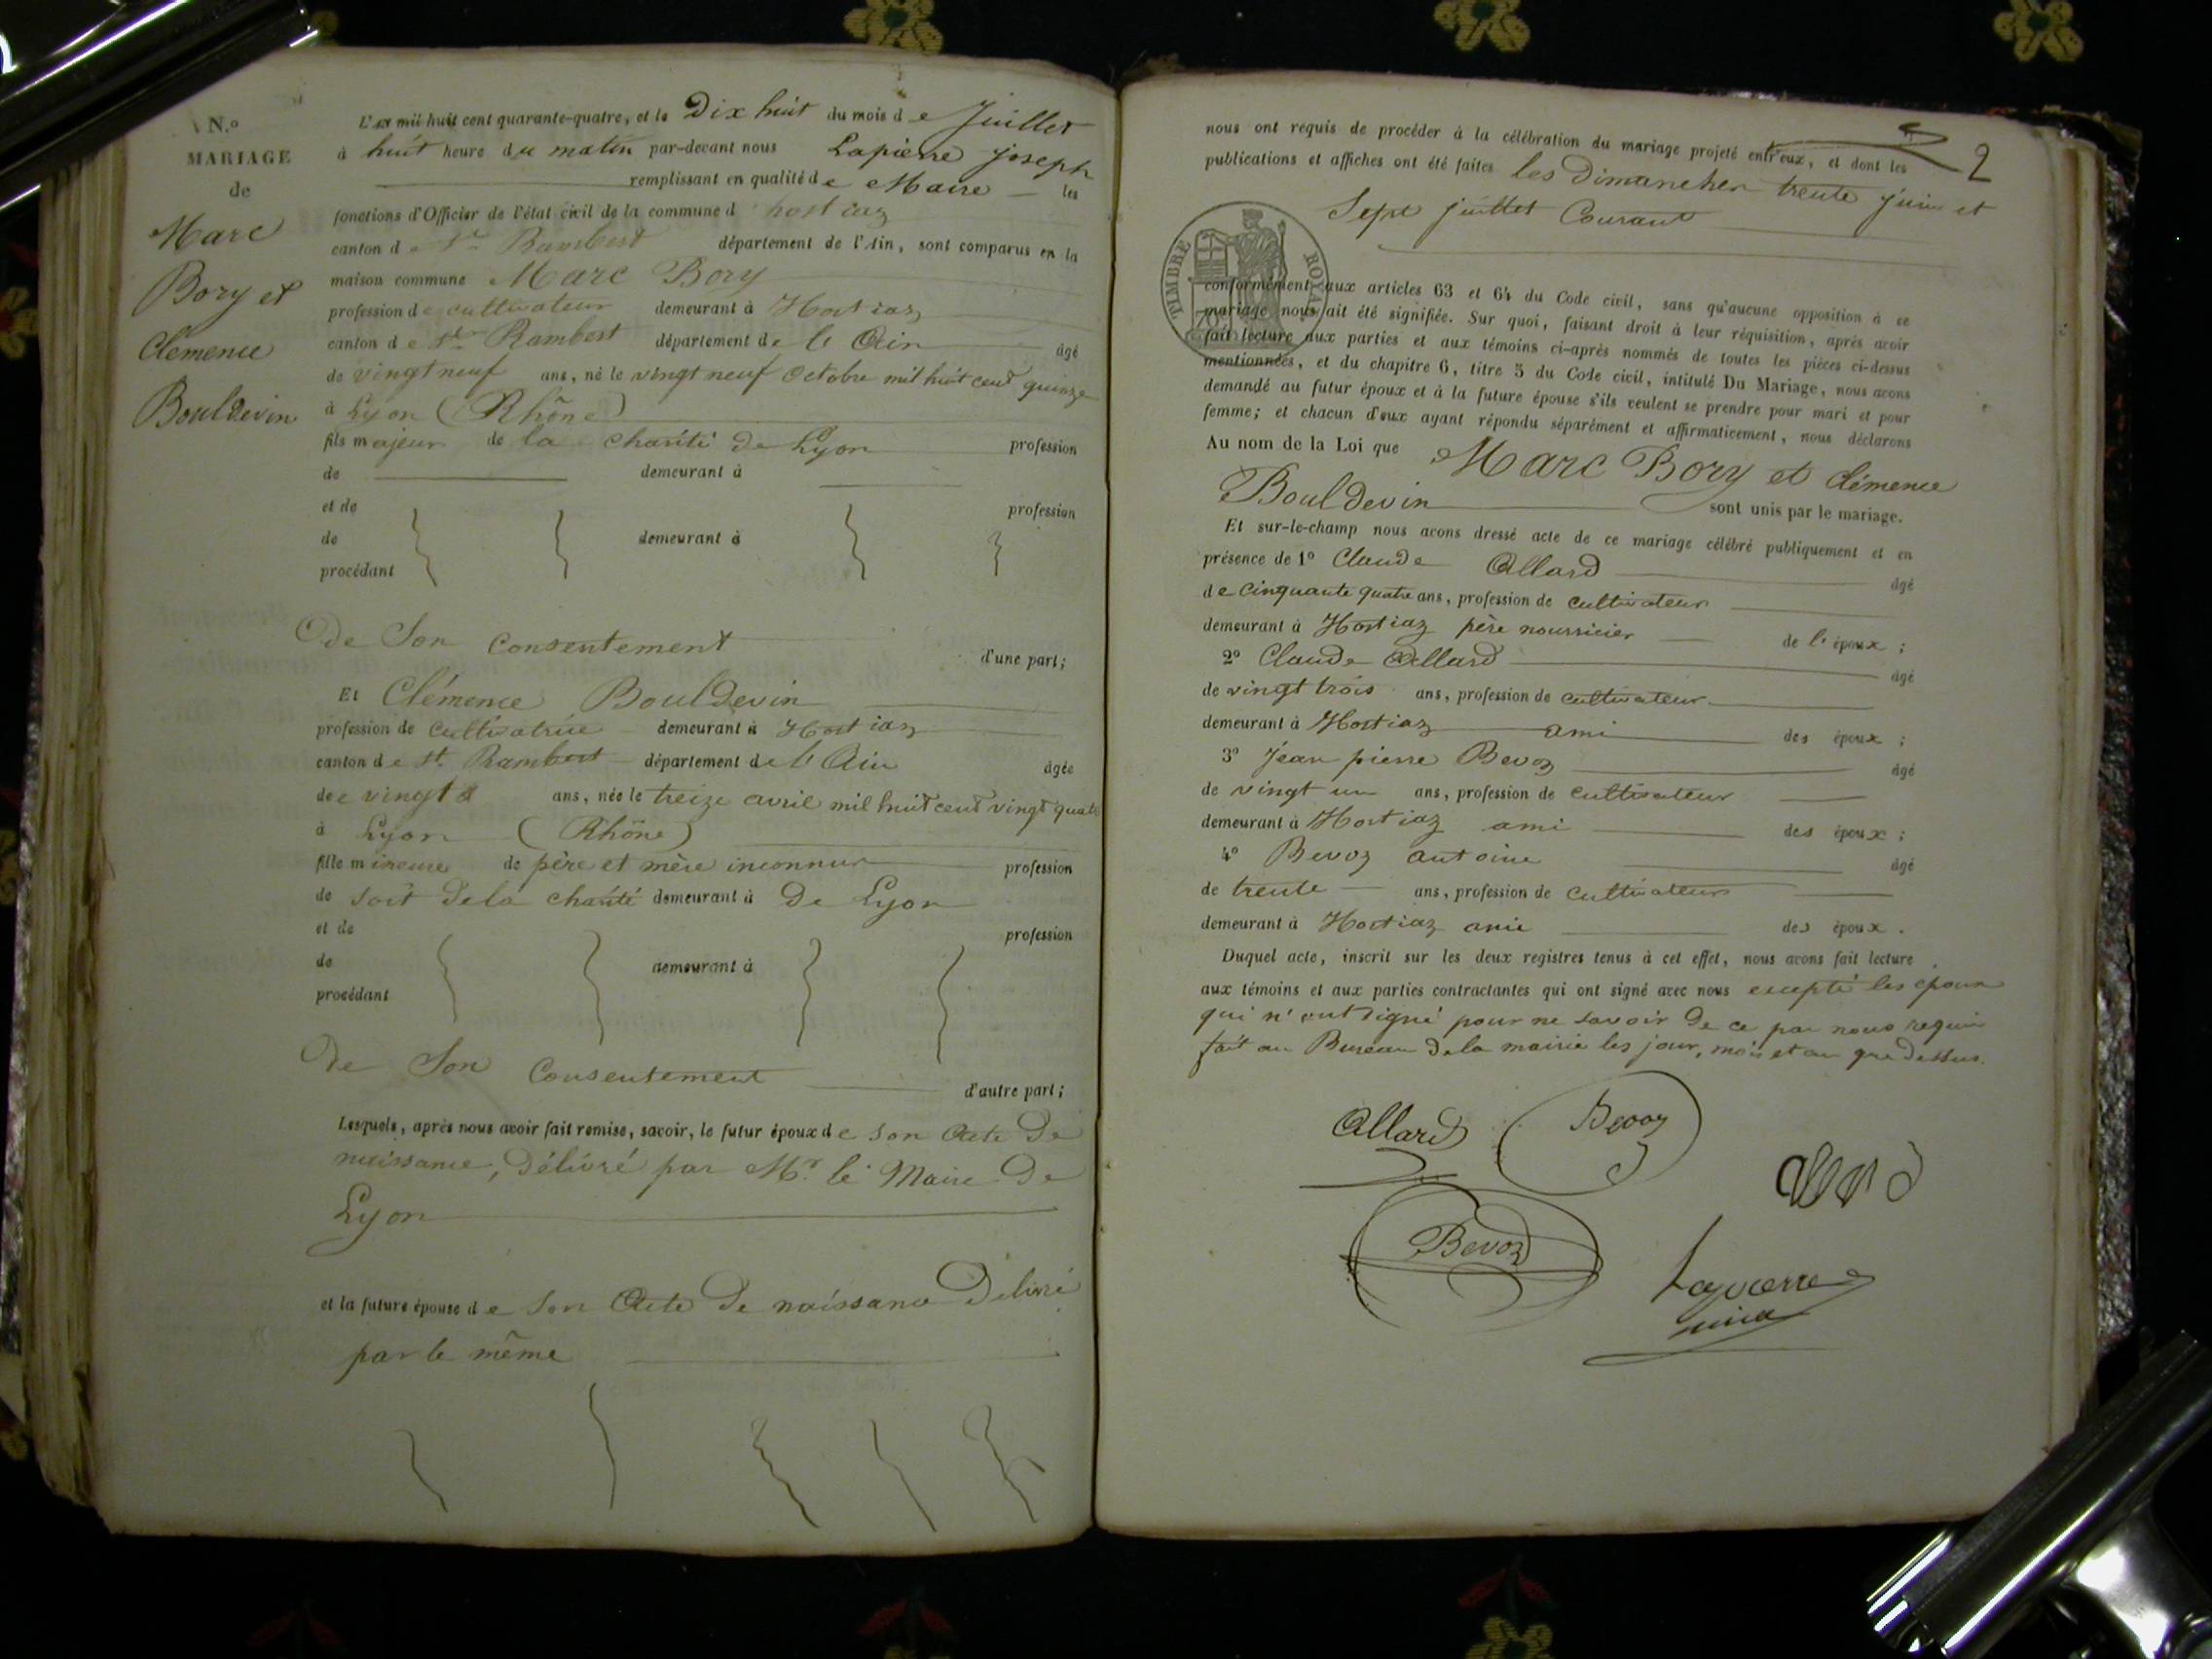 N.º
MARIAGE
de
Marc
Bory et
Clemence
Bouldevin
L'an mil huit cent quarante-quatre, et le Dix huit du mois de Juillet
à huit heure du matin par-devant nous Lapierre joseph
remplissant en qualité de Maire les
fonctions d'Officier de l'état civil de la commune d hostiaz
canton de St Rambert département de l'Ain, sont comparus en la
maison commune Marc Bory
profession de cultivateur demeurant à Hostiaz
canton de St Rambert département de l'Ain âgé
de vingt neuf ans, né le vingt neuf Octobre mil huit cent quinze
à Lyon (Rhône)
fils majeur de la charité de Lyon profession
de demeurant à
et de profession
de demeurant à
procédant
De Son consentement d'une part;
Et Clémence Bouldevin
profession de cultivatrice demeurant à Hostiaz
canton de St. Rambert département de l'Ain âgée
de vingt ans, née le treize avril mil huit cent vingt quatre
à Lyon (Rhône)
fille mineure de père et mère inconnus profession
de soit de la charité demeurant à De Lyon
et de profession
de demeurant à
procédant
De Son Consentement d'autre part;
Lesquels, après nous avoir fait remise, savoir, le futur époux de son Acte De
naissance, Délivré par Mr. le Maire De
Lyon
et la future épouse de Son Acte De naissance Délivré
par le même
2
nous ont requis de procéder à la célébration du mariage projeté entr'eux, et dont les
publications et affiches ont été faites les Dimanches trente juin et
Sept juillet Courant
TIMBRE ROYAL
conformément aux articles 63 et 64 du Code civil, sans qu'aucune opposition à ce
mariage nous ait été signifiée. Sur quoi, faisant droit à leur réquisition, après avoir
fait lecture aux parties et aux témoins ci-après nommés de toutes les pièces ci-dessus
mentionnées, et du chapitre 6, titre 5 du Code civil, intitulé Du Mariage, nous avons
demandé au futur époux et à la future épouse s'ils veulent se prendre pour mari et pour
femme; et chacun d'eux ayant répondu séparément et affirmativement, nous déclarons
Au nom de la Loi que Marc Bory et Clémence
Bouldevin sont unis par le mariage.
Et sur-le-champ nous avons dressé acte de ce mariage célébré publiquement et en
présence de 1º Claude Allard âgé
de cinquante quatre ans, profession de cultivateur
demeurant à Hostiaz père nourricier de l'époux;
2º Claude Allard âgé
de vingt trois ans, profession de cultivateur
demeurant à Hostiaz ami des époux;
3º Jean pierre Bevoz âgé
de vingt un ans, profession de cultivateur
demeurant à Hostiaz ami des époux;
4º Bevoz antoine âgé
de trente ans, profession de cultivateur
demeurant à Hostiaz ami des époux.
Duquel acte, inscrit sur les deux registres tenus à cet effet, nous avons fait lecture
aux témoins et aux parties contractantes qui ont signé avec nous excepté les époux
qui n'ont signé pour ne savoir De ce par nous requis
fait au Bureau de la mairie les jour, mois et an que dessus.
Allard Bevoz
allard
Bevoz
Lapierre